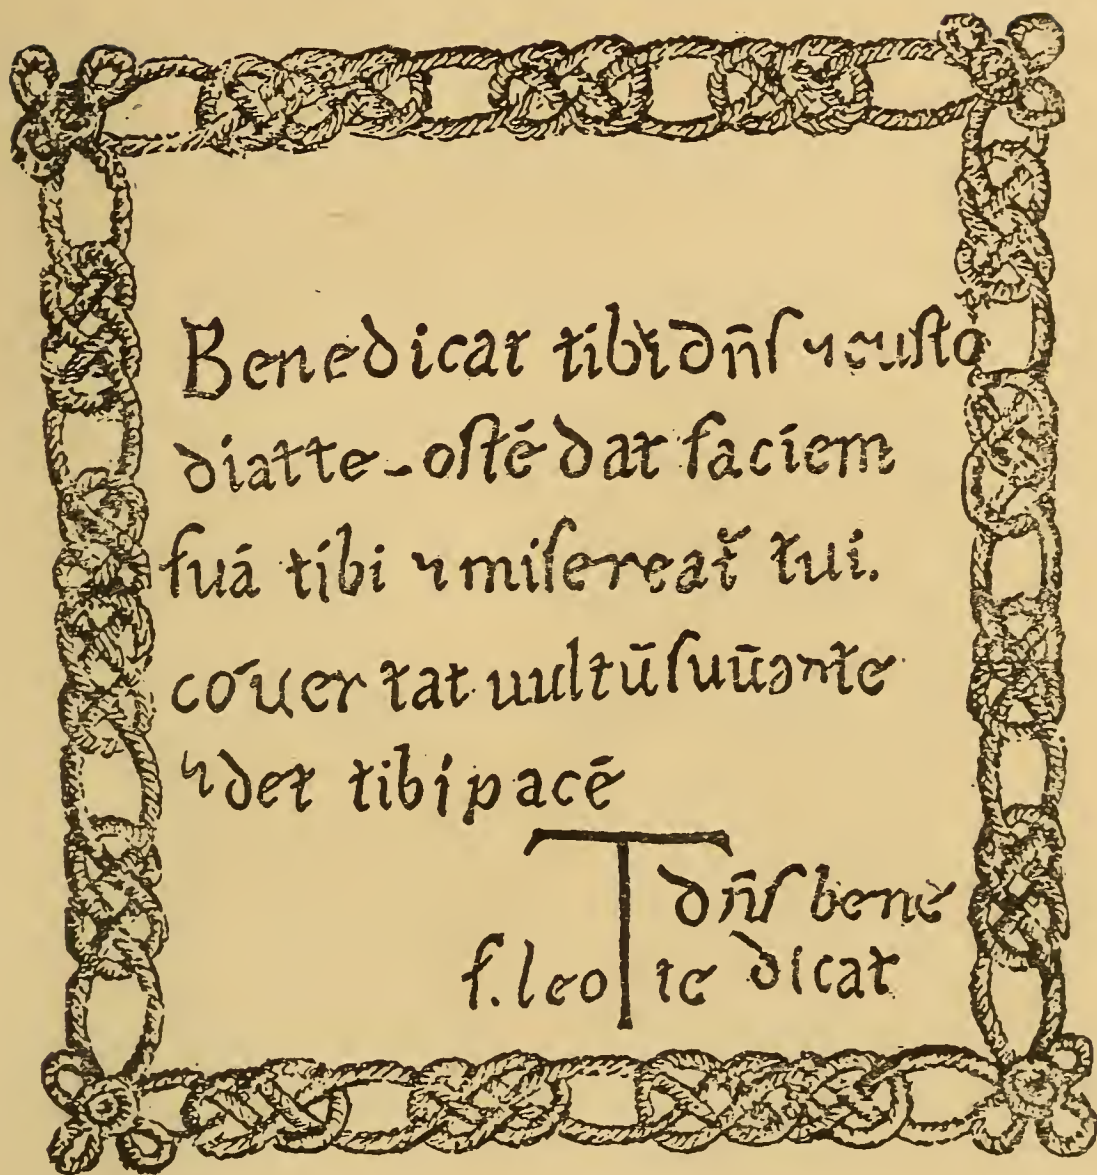 Benedicat tibi dn̄ſ ⁊ cuſto
diat te - oſtēdat faciem
ſuā tibi ⁊ miſereat̄ tui.
cōuertat uultū ſuū ante
⁊ det tibi pacē
dn̄ſ bene
f. leo T te dicat